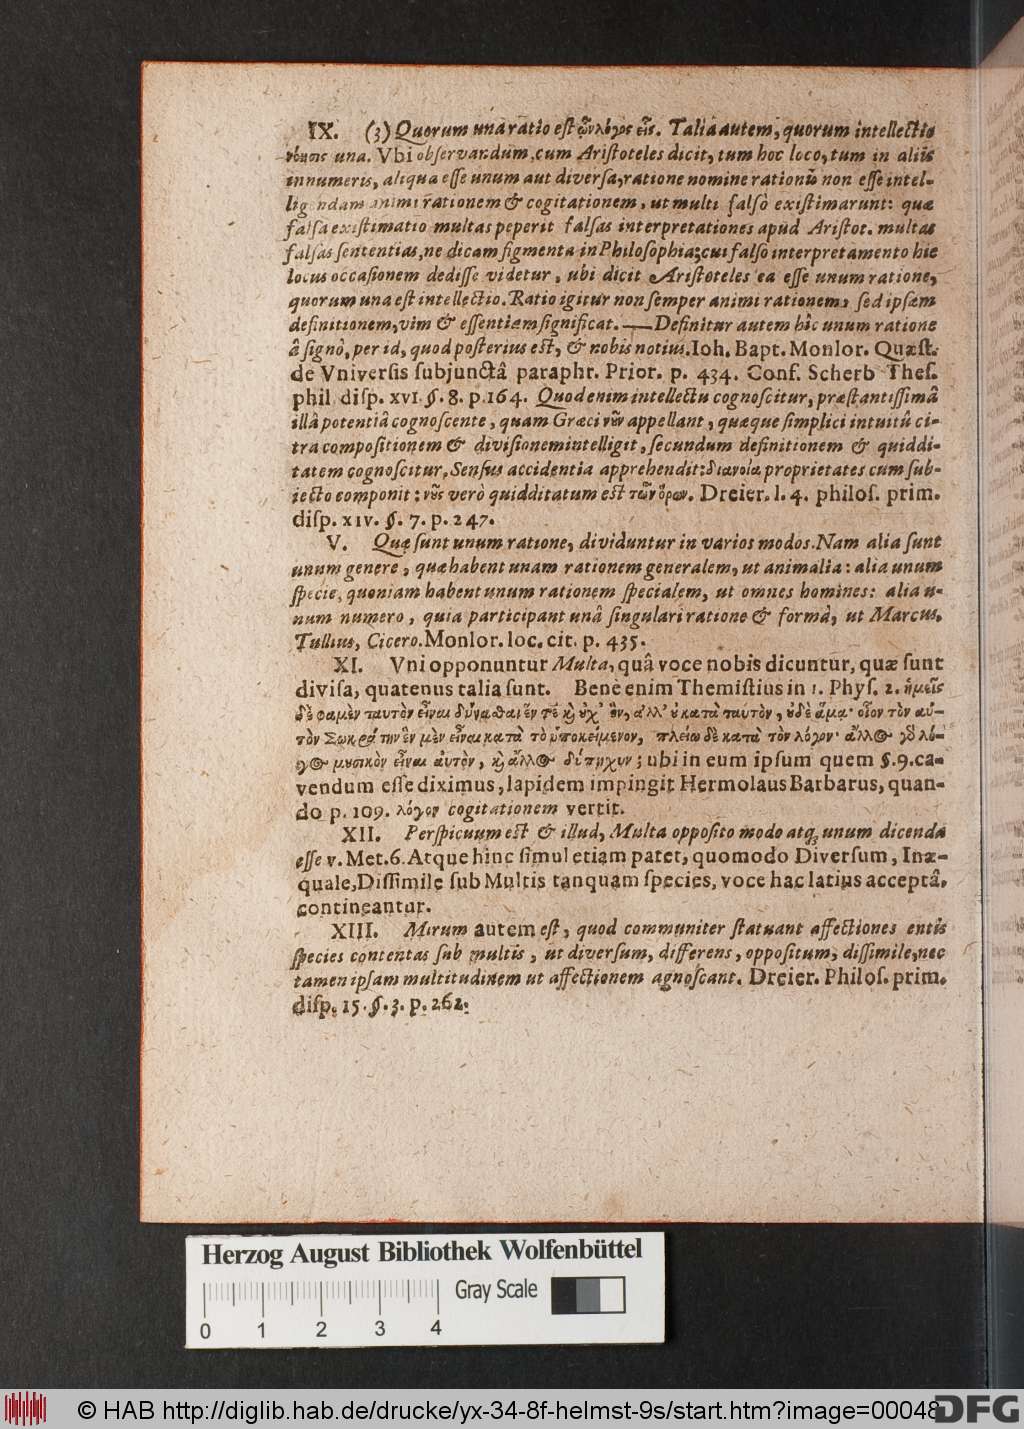 IX. (3) Quorum una ratio est ὧν λόγος εἷς. Talia autem, quorum intellectio
νόησις una. Vbi observandum, cum Aristoteles dicit, tum hoc loco, tum in aliis
innumeris, aliqua esse unum aut diversa, ratione nomine rationũ non esse intel-
ligendam animi rationem & cogitationem, ut multi falsò existimarunt: quæ
falsa existimatio multas peperit falsas interpretationes apud Aristot. multas
falsas sententias, ne dicam figmenta in Philosophia; cui falso interpretamento hic
locus occasionem dedisse videtur, ubi dicit Aristoteles ea esse unum ratione,
quorum una est intellectio. Ratio igitur non semper animi rationem, sed ipsam
definitionem, vim & essentiam significat. — Definitur autem hîc unum ratione
â signò, per id, quod posterius est, & nobis notius. Ioh. Bapt. Monlor. Quæst.
de Vniversis subjunctâ paraphr. Prior. p. 434. Conf. Scherb Thes.
phil disp. XVI. §. 8. p. 164. Quod enim intellectu cognoscitur, præstantissimâ
illâ potentiâ cognoscente, quam Græci νῦν appellant, quæque simplici intuitû ci-
tra compositionem & divisionem intelligit, secundum definitionem & quiddi-
tatem cognoscitur. Sensus accidentia apprehendit: διανοία proprietates cum sub-
jecto componit: νῦς verò quidditatum est τῶν ὅρων. Dreier. l. 4. philos. prim.
disp. XIV. §. 7. p. 247.
V. Quæ sunt unum ratione, dividuntur in varios modos. Nam alia sunt
unum genere, quæ habent unam rationem generalem, ut animalia: alia unum
specie, quoniam habent unum rationem specialem, ut omnes homines: alia u-
num numero, quia participant unâ singulari ratione & formâ, ut Marcus,
Tullius, Cicero. Monlor. loc. cit. p. 435.
XI. Vni opponuntur Multa, quâ voce nobis dicuntur, quæ sunt
divisa, quatenus talia sunt. Benè enim Themistius in 1. Phys. 2. ἡμεῖς
δὲ φαμὲν ταυτὸν εἶναι δύναθαι ἓν τὲ κὶ ὐχ' ἓν, ἀλλ' ὐ κατὰ ταυτὸν, ὐδὲ ἅμα· οἷον τὸν αὐ-
τὸν Σωκράτην ἓν μὲν εἶναι κατὰ τὸ ὑποκείμενον, πλείω δὲ κατὰ τὸν λόγον· ἄλλος γὸ λό-
γος μυσικὸν εἶναι ἀυτὸν, κὶ ἄλλος δίπηχυν; ubi in eum ipsum quem §. 9. ca-
vendum esse diximus, lapidem impingit Hermolaus Barbarus, quan-
do p. 109. λόγον cogitationem vertit.
XII. Perspicuum est & illud, Multa opposito modo atq; unum dicenda
esse v. Met. 6. Atque hinc simul etiam patet, quomodo Diversum, Inæ-
quale, Dissimile sub Multis tanquam species, voce hac latius acceptâ,
contineantur.
XIII. Mirum autem est, quod communiter statuant affectiones entis
species contentas sub multis, ut diversum, differens, oppositum, dissimile, nec
tamen ipsam multitudinem ut affectionem agnoscant. Dreier. Philos. prim.
disp. 15. §. 3. p. 262.
Herzog August Bibliothek Wolfenbüttel
Gray Scale
0 1 2 3 4
© HAB http://diglib.hab.de/drucke/yx-34-8f-helmst-9s/start.htm?image=00048
DFG